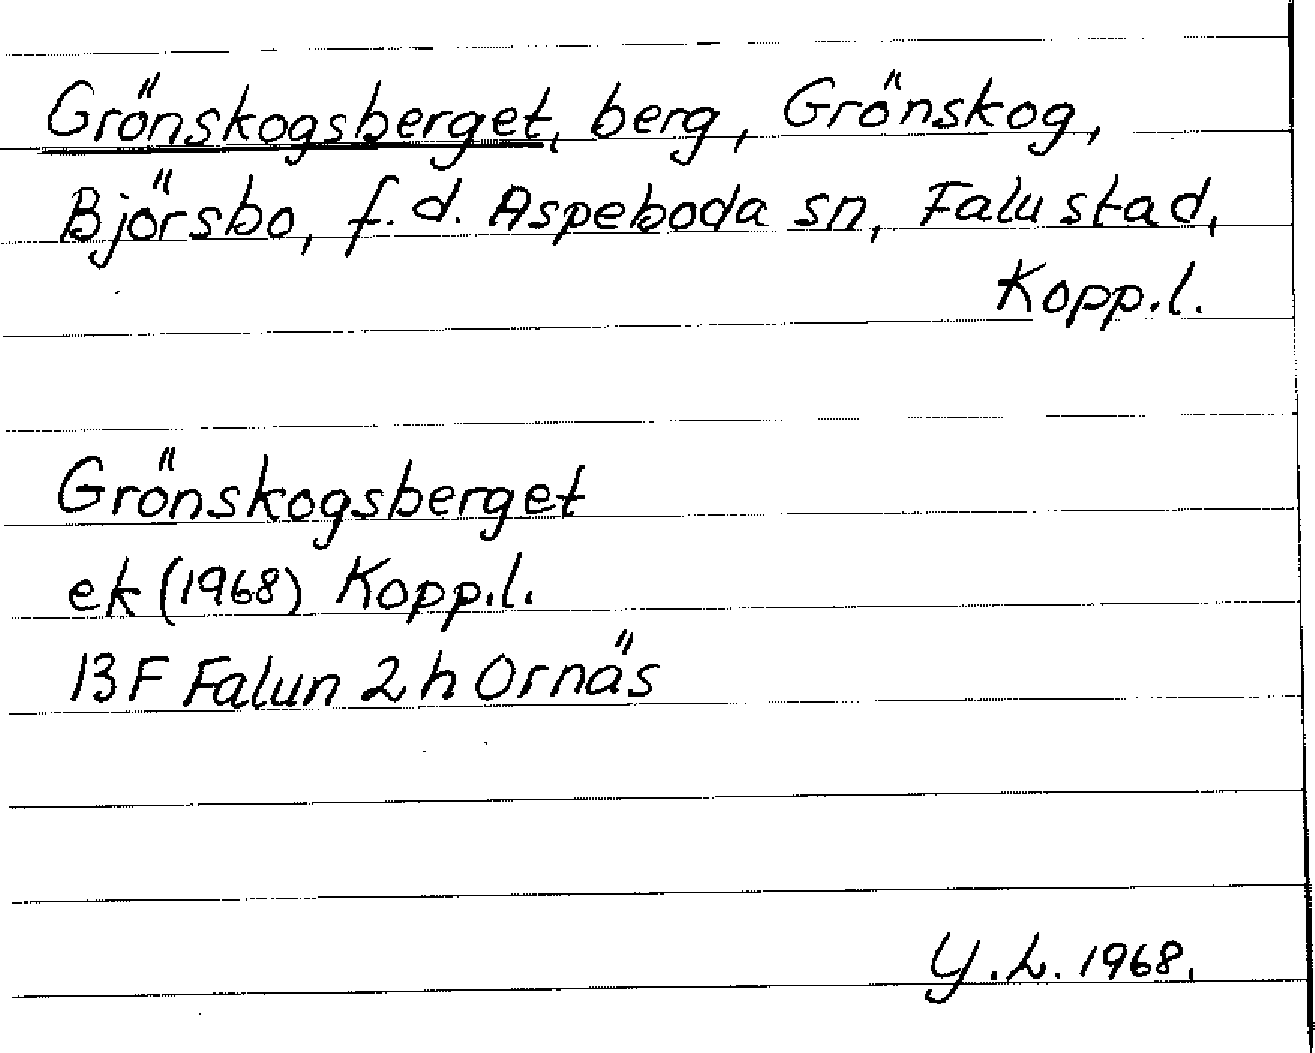 Grönskogsberget, berg, Grönskog,
Björsbo, f.d. Aspeboda sn, Falu stad,
Kopp.l.
Grönskogsberget
ek (1968) Kopp.l.
13F Falun 2h Ornäs
Y.L. 1968.